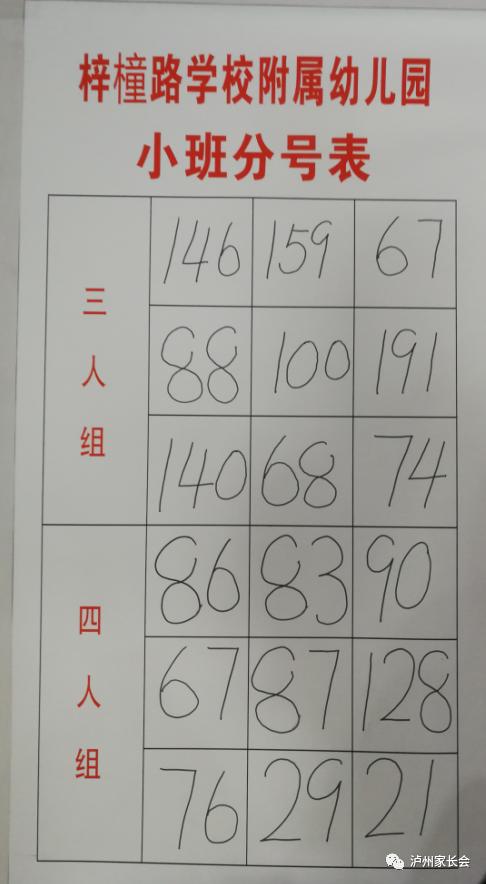 梓橦路学校附属幼儿园
小班分号表
三人组
146 159 67
88 100 191
140 68 74
四人组
86 83 90
67 87 128
76 29 21
泸州家长会